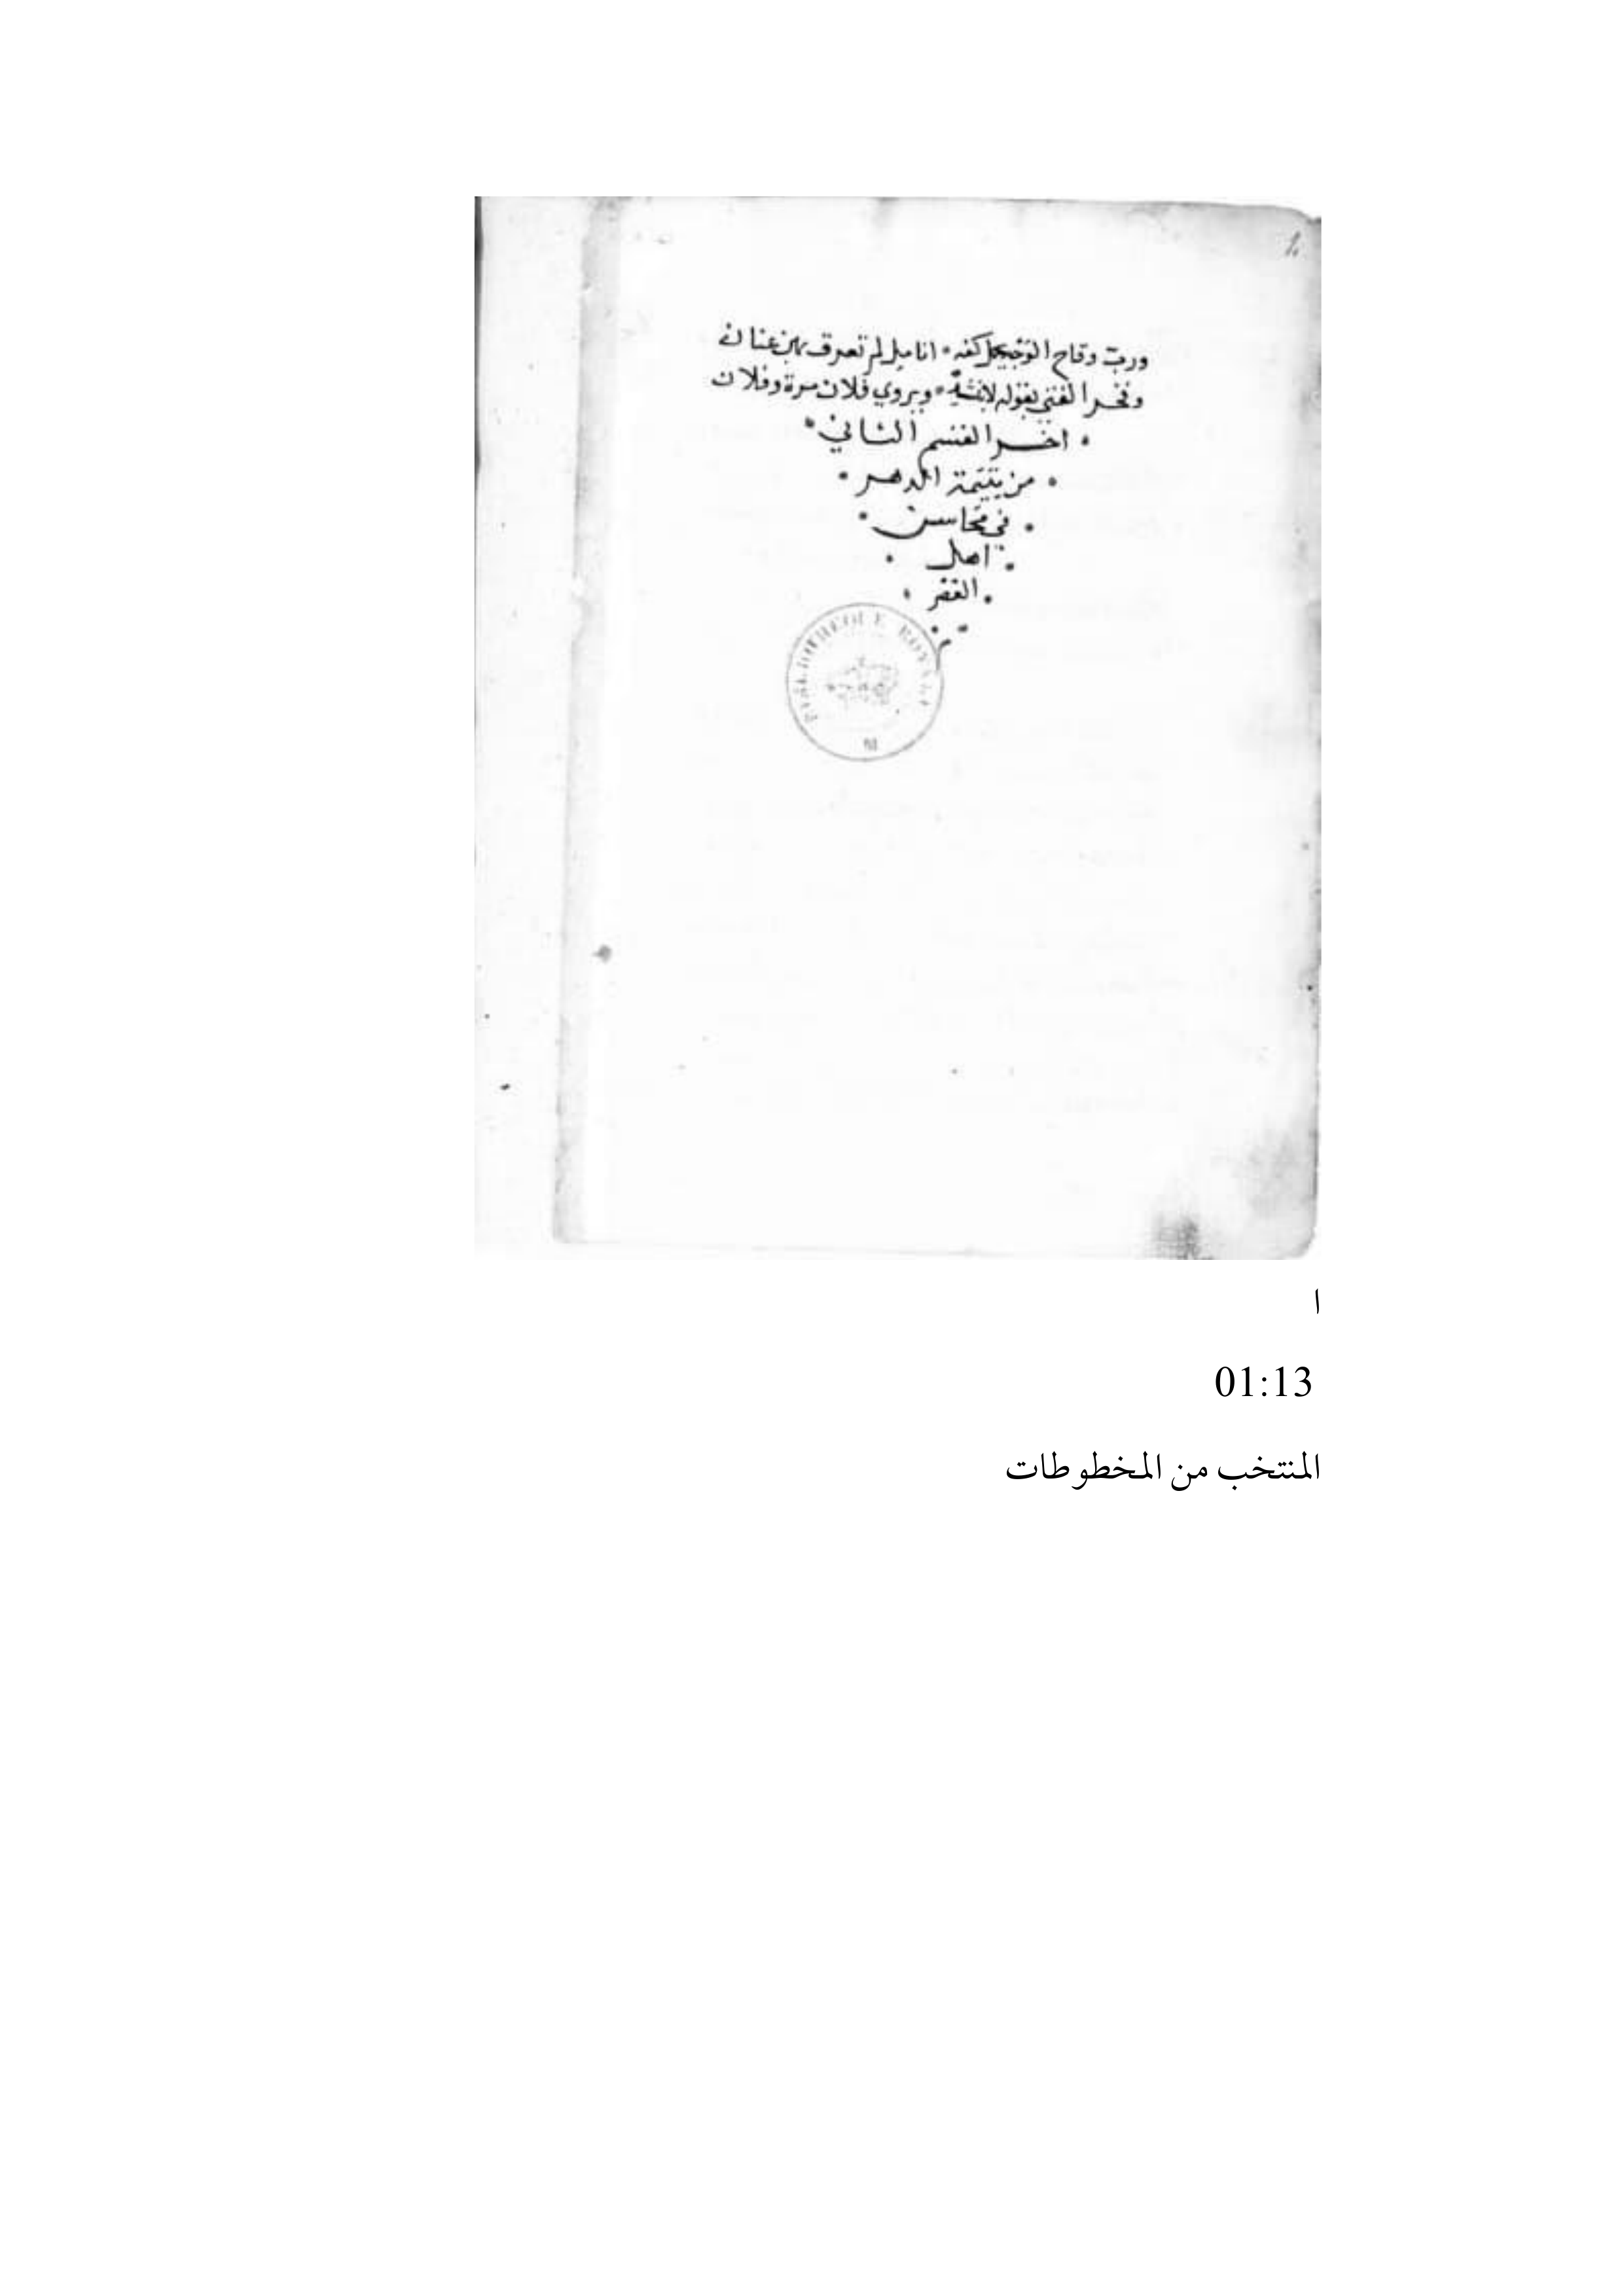 ورب وقاح الوجه يحمل كفه • انامل لم تعرق بهن عنان
وفخر الفتى بقوله لابنشيد • ويروي فلان مرة وفلان
• اخر القسم الثاني •
• من يتيمة الدهر •
• في محاسن •
• اهل •
• العصر •
BIBLIOTHEQUE ROYALE
ا
01:13
المنتخب من المخطوطات